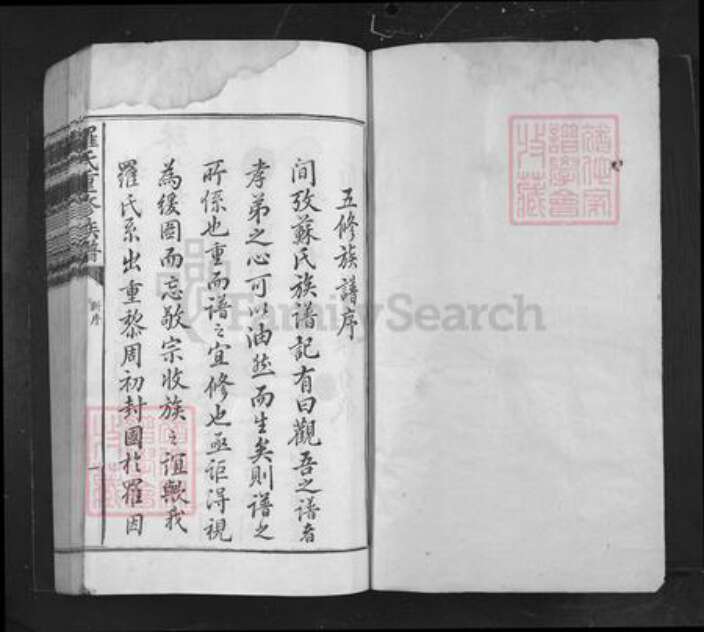 五修族譜序
間攷蘇氏族譜記有曰觀吾之譜者
孝弟之心可以油然而生矣則譜之
所係也重而譜之宜修也亟詎得視
為緩圖而忘敬宗收族之誼歟我
羅氏系出重黎周初封國於羅因
羅氏重修族譜
新序
一
FamilySearch